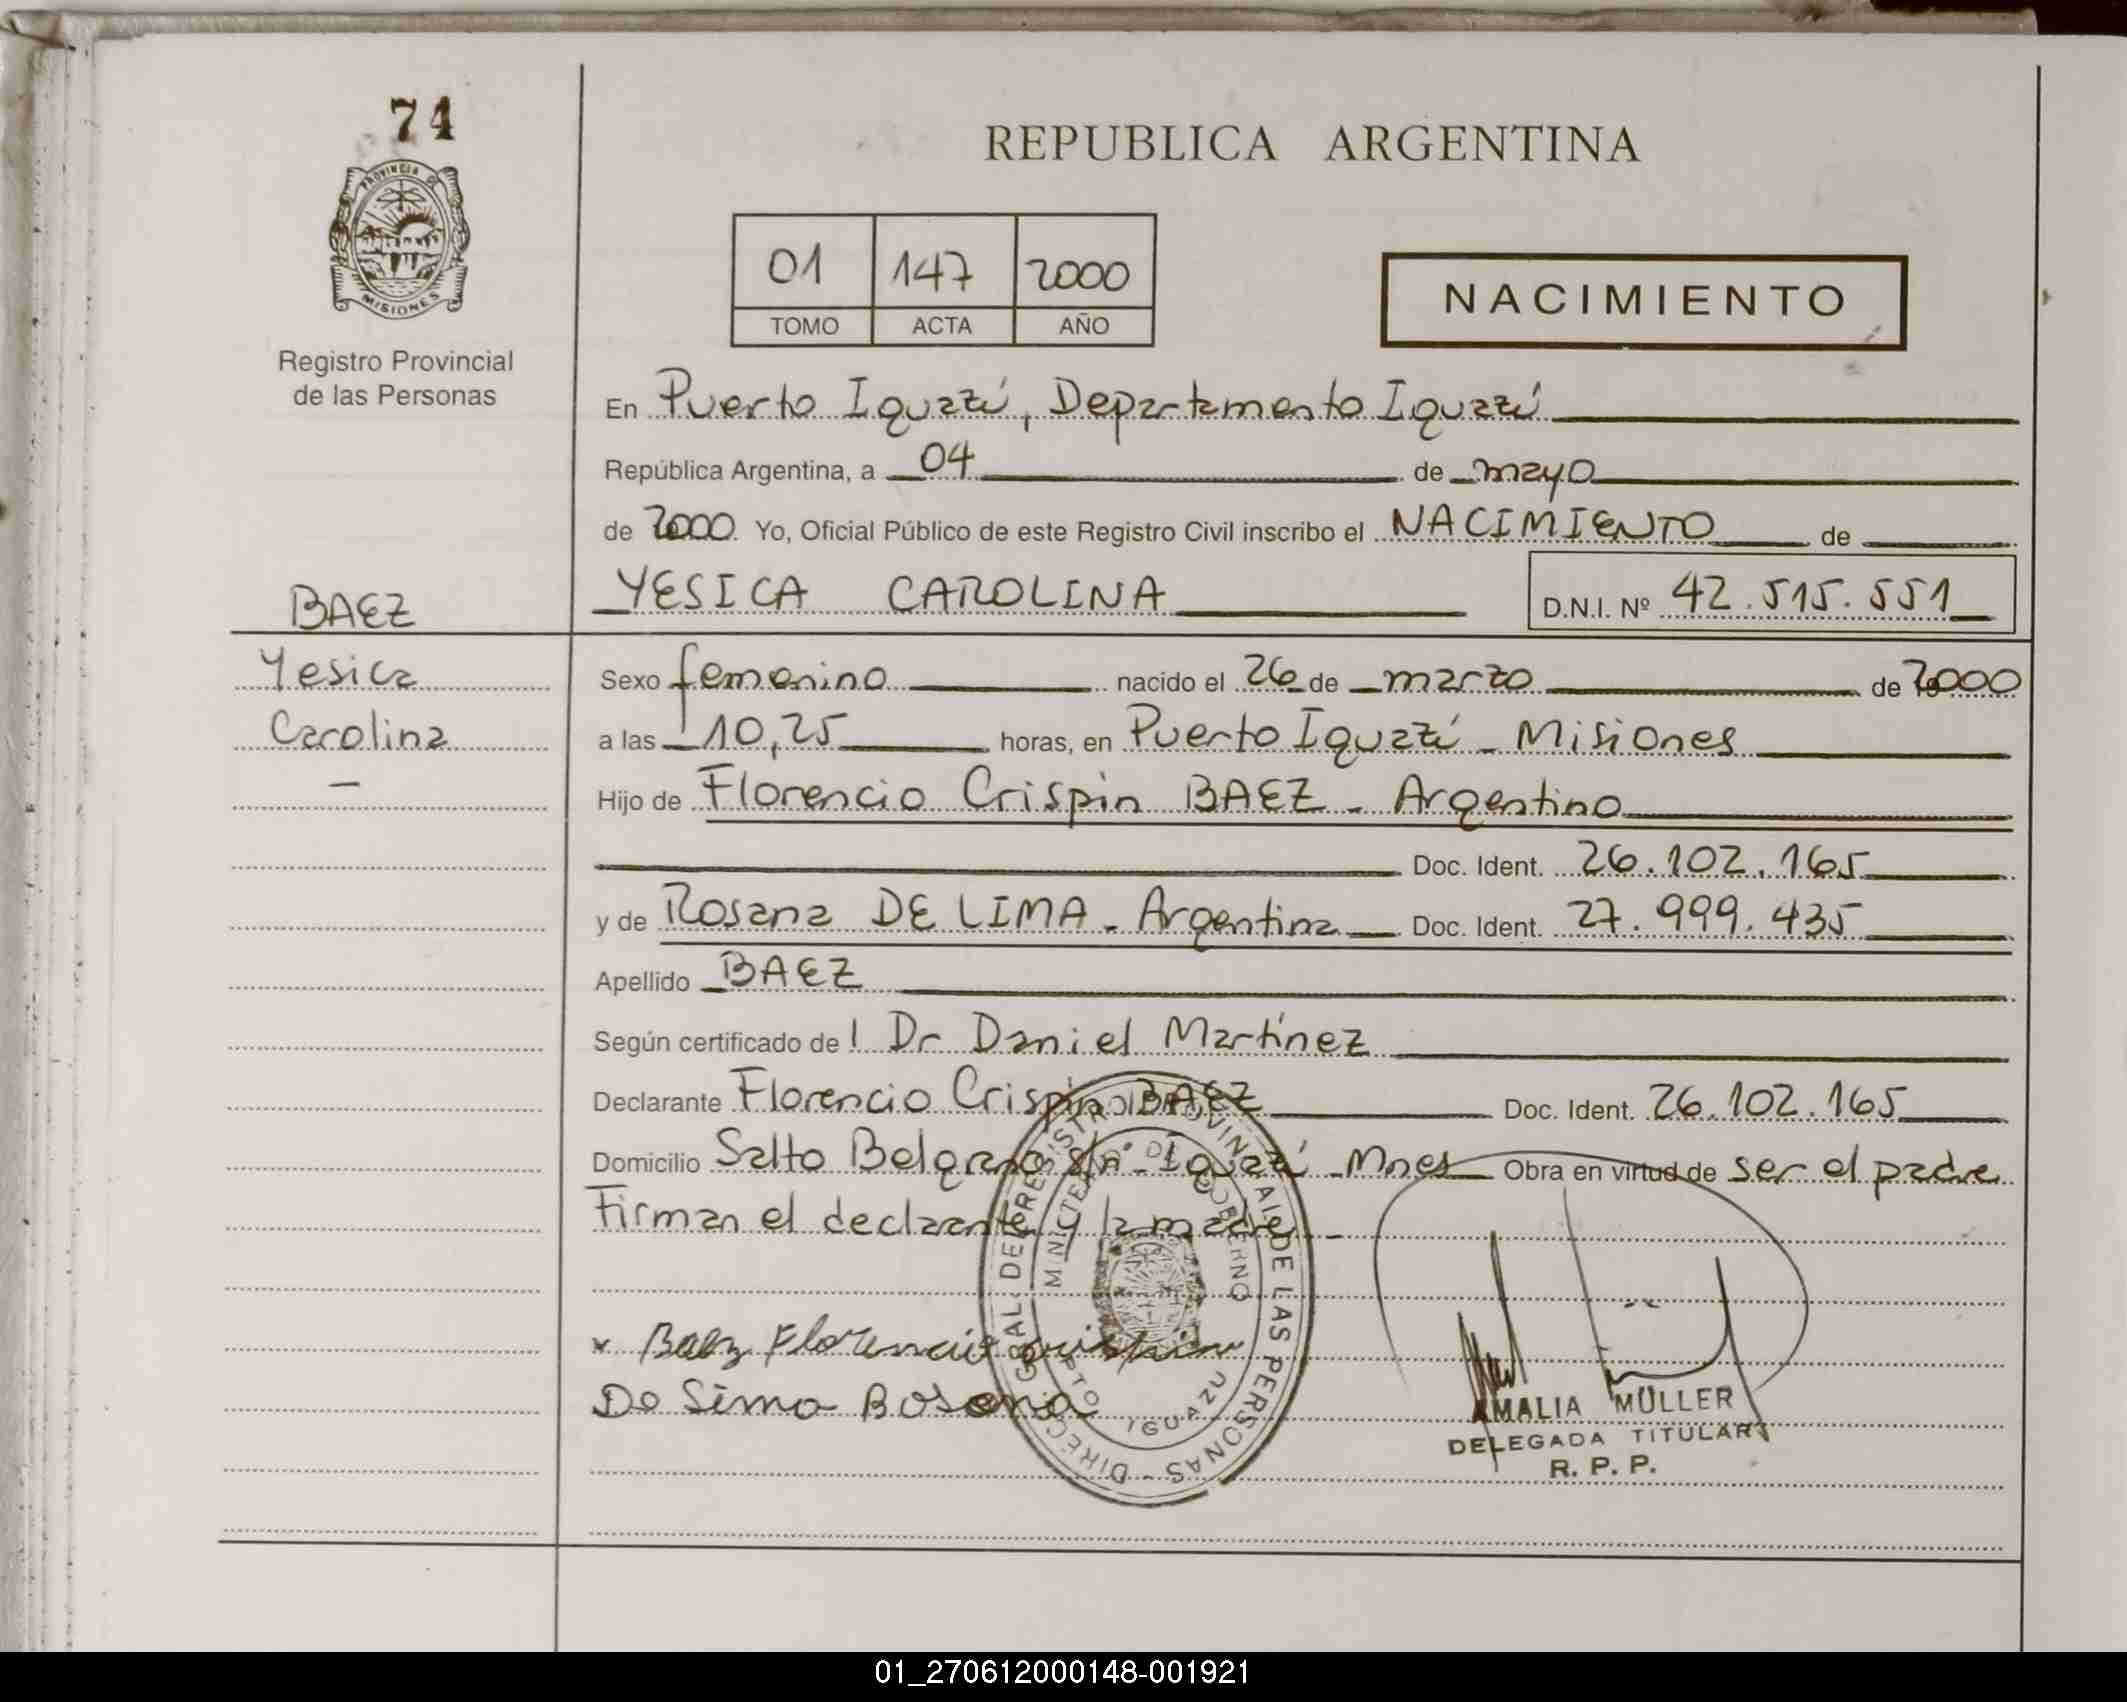 74
PROVINCIA DE
MISIONES
Registro Provincial
de las Personas
REPUBLICA ARGENTINA
01 147 2000
TOMO ACTA AÑO
NACIMIENTO
En Puerto Iguazú, Departamento Iguazú
República Argentina, a 04 de mayo
de 2000. Yo, Oficial Público de este Registro Civil inscribo el NACIMIENTO de
BAEZ
YESICA CAROLINA D.N.I. Nº 42.515.551
Yesica
Carolina
Sexo femenino nacido el 26 de marzo de 2000
a las 10,25 horas, en Puerto Iguazú - Misiones
Hijo de Florencio Crispin BAEZ - Argentino
Doc. Ident. 26.102.165
y de Rosana DE LIMA - Argentina Doc. Ident. 27.999.435
Apellido BAEZ
Según certificado de l Dr Daniel Martínez
Declarante Florencio Crispin BAEZ Doc. Ident. 26.102.165
Domicilio Salto Belgrano s/n - Iguazú - Mnes Obra en virtud de ser el padre
Firman el declarante y la madre -
x Baez Florencio
De Lima Rosana
DIRECC. GRAL. DEL REGISTRO PROVINCIAL DE LAS PERSONAS -
MINISTERIO DE GOBIERNO
DPTO IGUAZU
AMALIA MÜLLER
DELEGADA TITULAR
R. P. P.
01_270612000148-001921